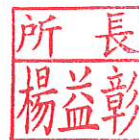 所長
楊益彰